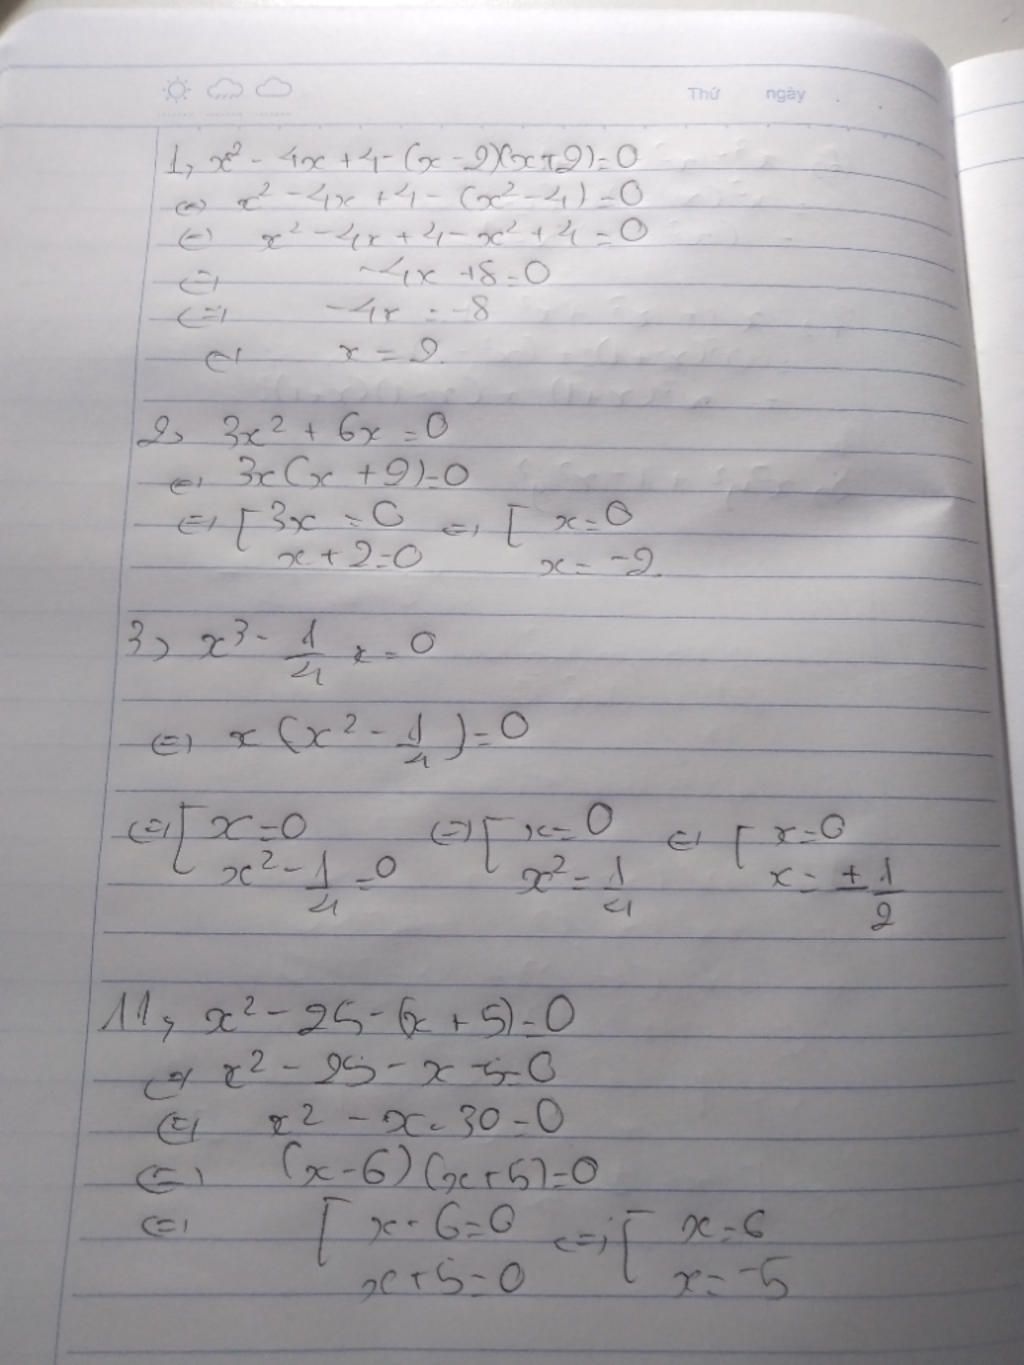 Thứ ngày
1, x² - 4x + 4 - (x - 2)(x + 2) = 0
⇔ x² - 4x + 4 - (x² - 4) = 0
⇔ x² - 4x + 4 - x² + 4 = 0
⇔ -4x + 8 = 0
⇔ -4x = -8
⇔ x = 2
2, 3x² + 6x = 0
⇔ 3x(x + 2) = 0
⇔ [ 3x = 0 ⇔ [ x = 0
x + 2 = 0 x = -2
3, x³ - 1/4 x = 0
⇔ x(x² - 1/4) = 0
⇔ [ x = 0 ⇔ [ x = 0 ⇔ [ x = 0
x² - 1/4 = 0 x² = 1/4 x = ± 1/2
11, x² - 25 - (x + 5) = 0
⇔ x² - 25 - x - 5 = 0
⇔ x² - x - 30 = 0
⇔ (x - 6)(x + 5) = 0
⇔ [ x - 6 = 0 ⇔ [ x = 6
x + 5 = 0 x = -5